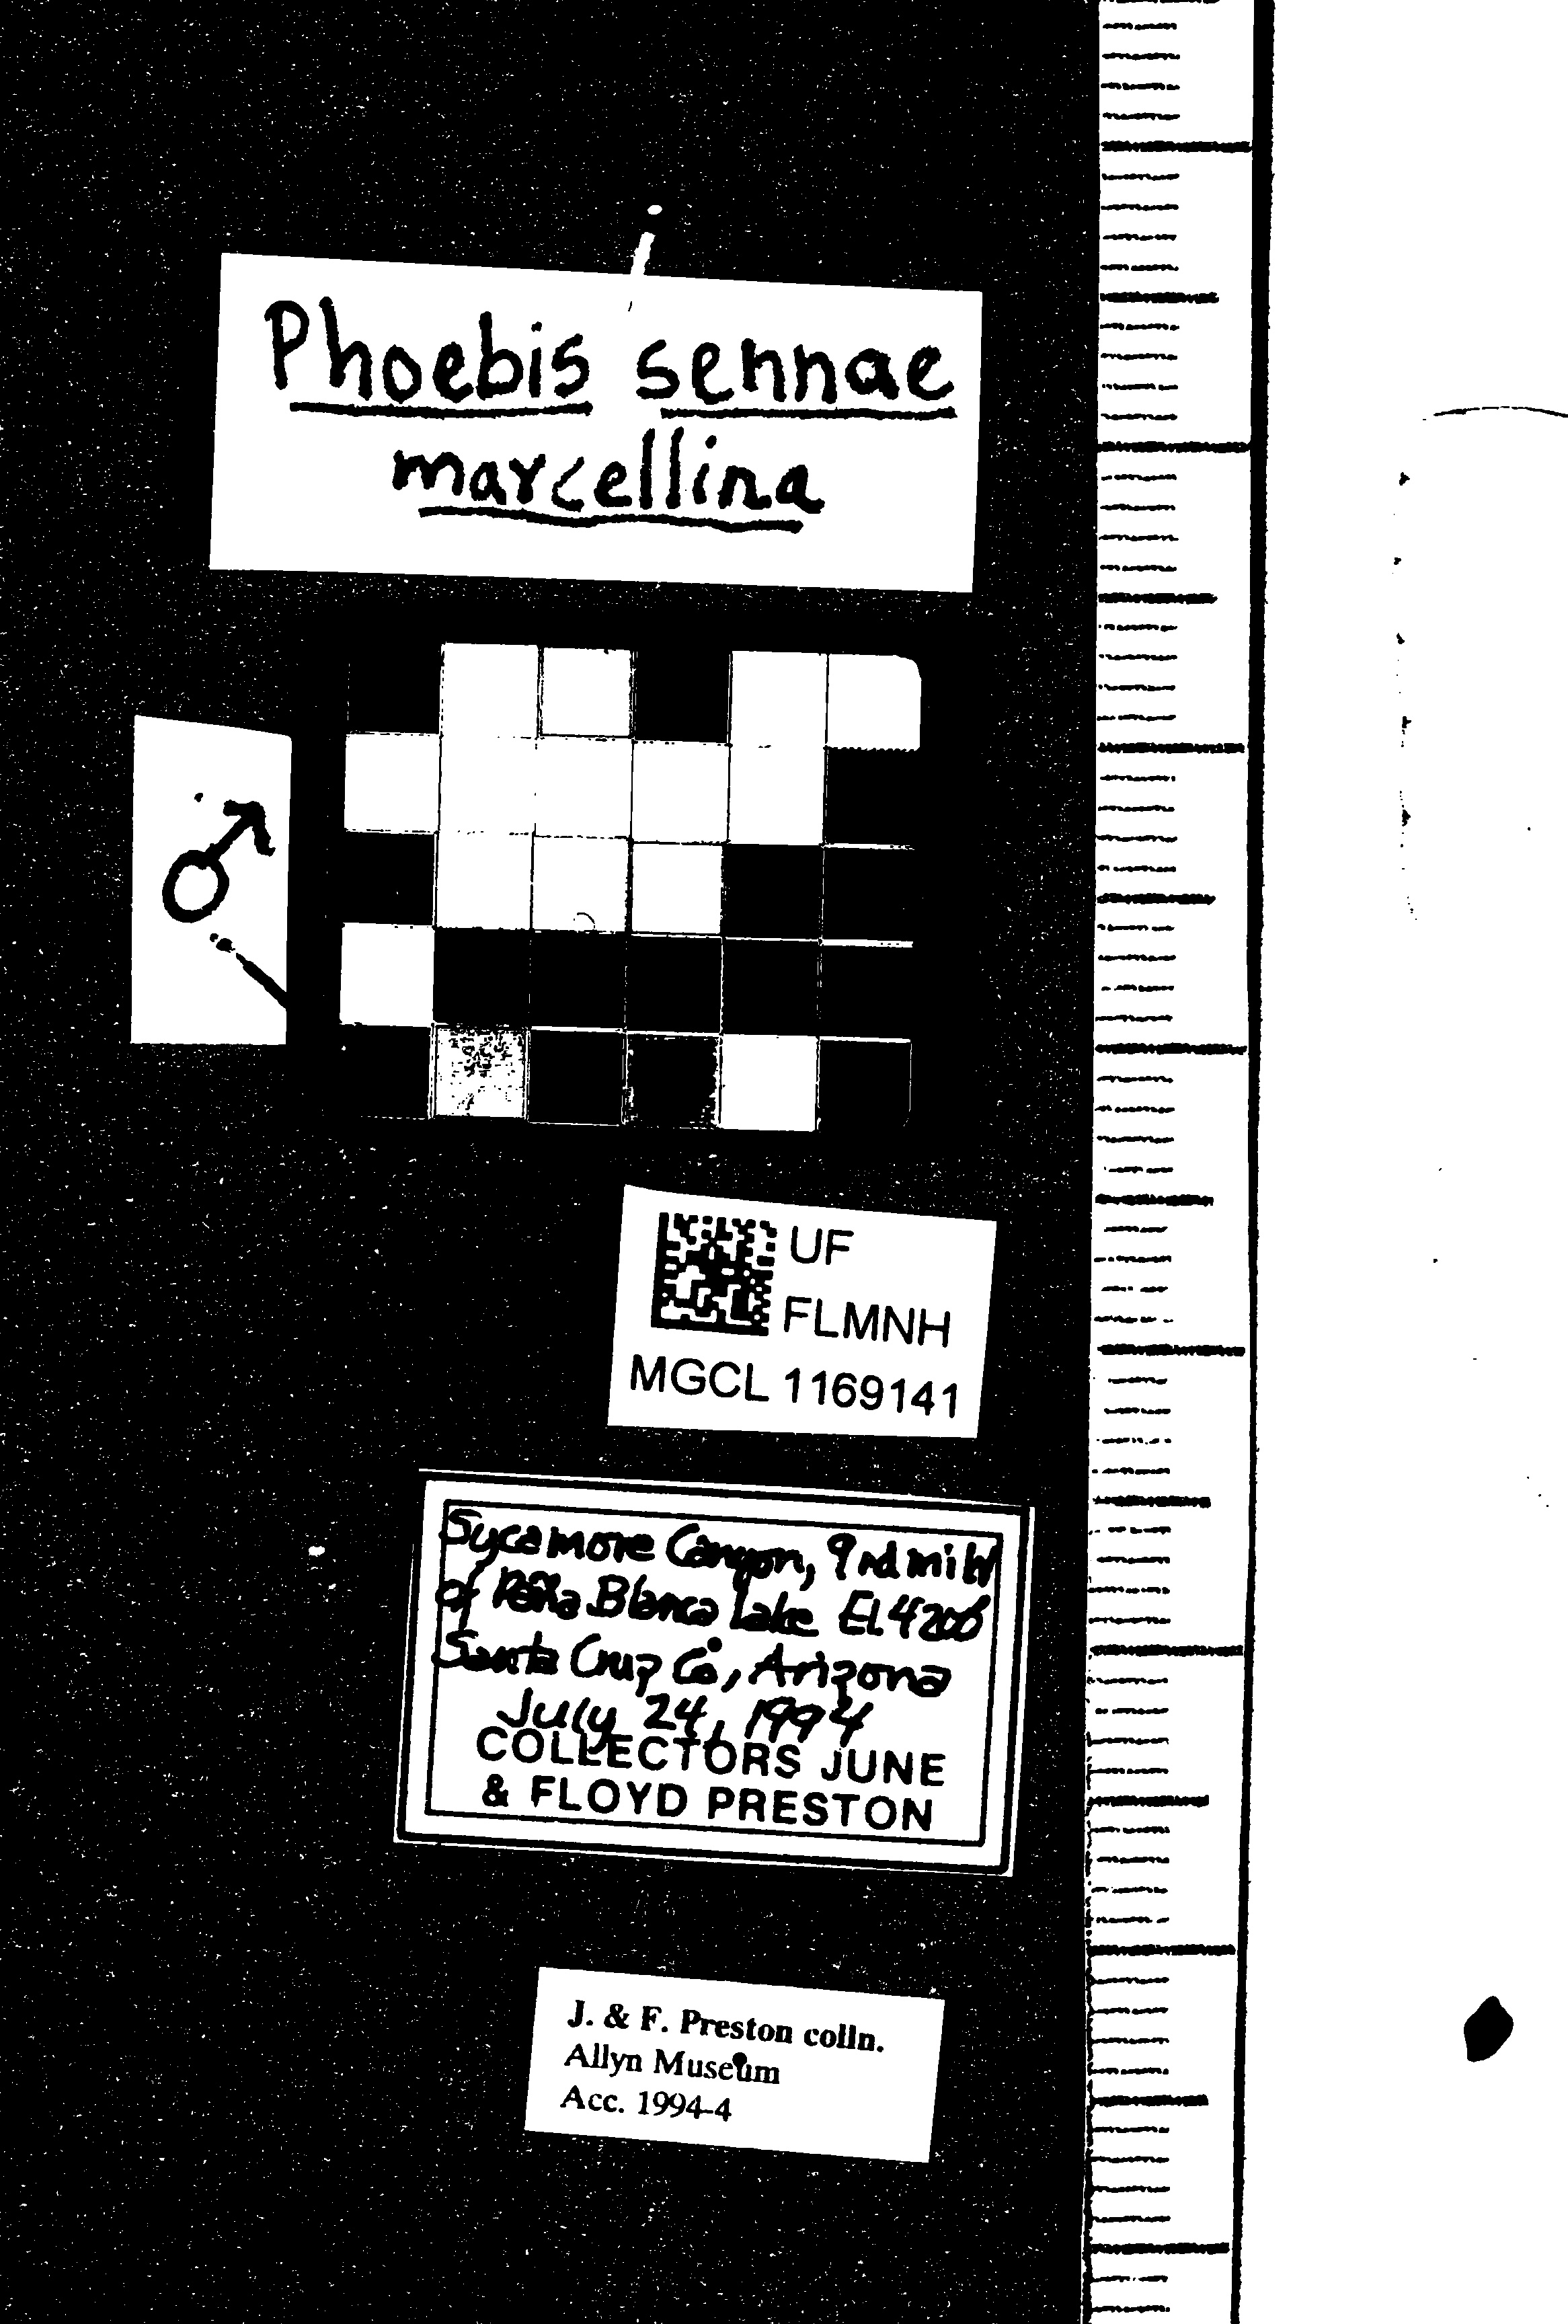 Phoebis sennae
marcellina
♂
UF
FLMNH
MGCL 1169141
Sycamore Canyon, 9 rd mi W
of Peña Blanca Lake El 4200
Santa Cruz Co, Arizona
July 24, 1994
COLLECTORS JUNE
& FLOYD PRESTON
J. & F. Preston colln.
Allyn Museum
Acc. 1994-4